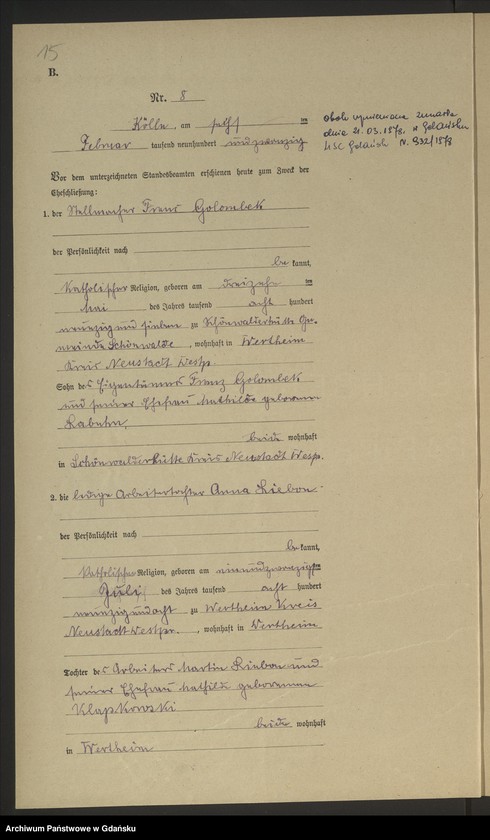 15
B.
Nr. 8
Kölln, am sechs ten
Februar tausend neunhundert undzwanzig
obok wymieniona zmarła
dnia 21.03.1978. w Gdańsku
USC Gdańsk N. 932/1978
Vor dem unterzeichneten Standesbeamten erschienen heute zum Zweck der
Eheschließung:
1. der Stellmacher Franz Golombek
der Persönlichkeit nach
be kannt,
katholischer Religion, geboren am dreizehn ten
Mai des Jahres tausend acht hundert
neunzig und sieben zu Schönwalderhütte Ge-
meinde Schönwalde, wohnhaft in Wertheim
Kreis Neustadt Westp.
Sohn des Eigentümers Franz Golombek
und seiner Ehefrau Mathilde geborenen
Labuhn,
beide wohnhaft
in Schönwalderhütte Kreis Neustadt Westp.
2. die ledige Arbeitertochter Anna Liebon
der Persönlichkeit nach
be kannt,
katholischer Religion, geboren am einundzwanzigsten
Juli des Jahres tausend acht hundert
neunzig und acht zu Wertheim Kreis
Neustadt Westpr., wohnhaft in Wertheim
Tochter des Arbeiters Martin Liebon und
seiner Ehefrau Mathilde geborenen
Klapkowski
beide wohnhaft
in Wertheim
Archiwum Państwowe w Gdańsku